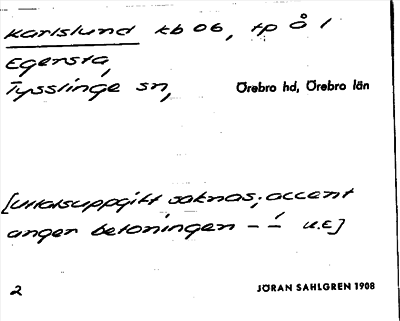 Karlslund kb 06, tp Å 1
Egersta,
Tysslinge sn,
Örebro hd, Örebro län
[Uttalsuppgift saknas; accent
anger betoningen – –́ u.E]
2
JÖRAN SAHLGREN 1908